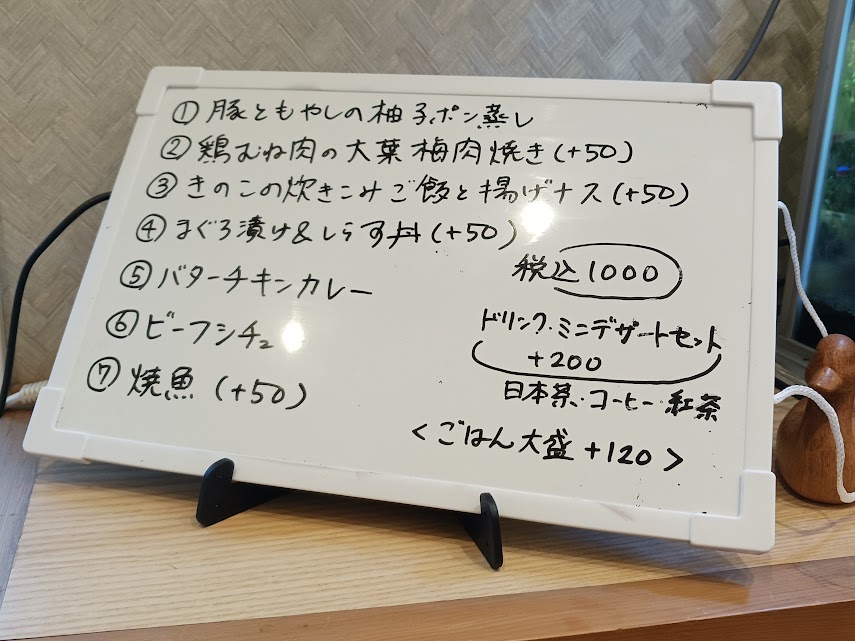 ① 豚ともやしの柚子ポン蒸し
② 鶏むね肉の大葉梅肉焼き(+50)
③ きのこの炊きこみご飯と揚げナス(+50)
④ まぐろ漬け&しらす丼(+50)
⑤ バターチキンカレー
⑥ ビーフシチュ
⑦ 焼魚 (+50)
税込1000
ドリンク・ミニデザートセット
+200
日本茶・コーヒー・紅茶
<ごはん大盛+120>